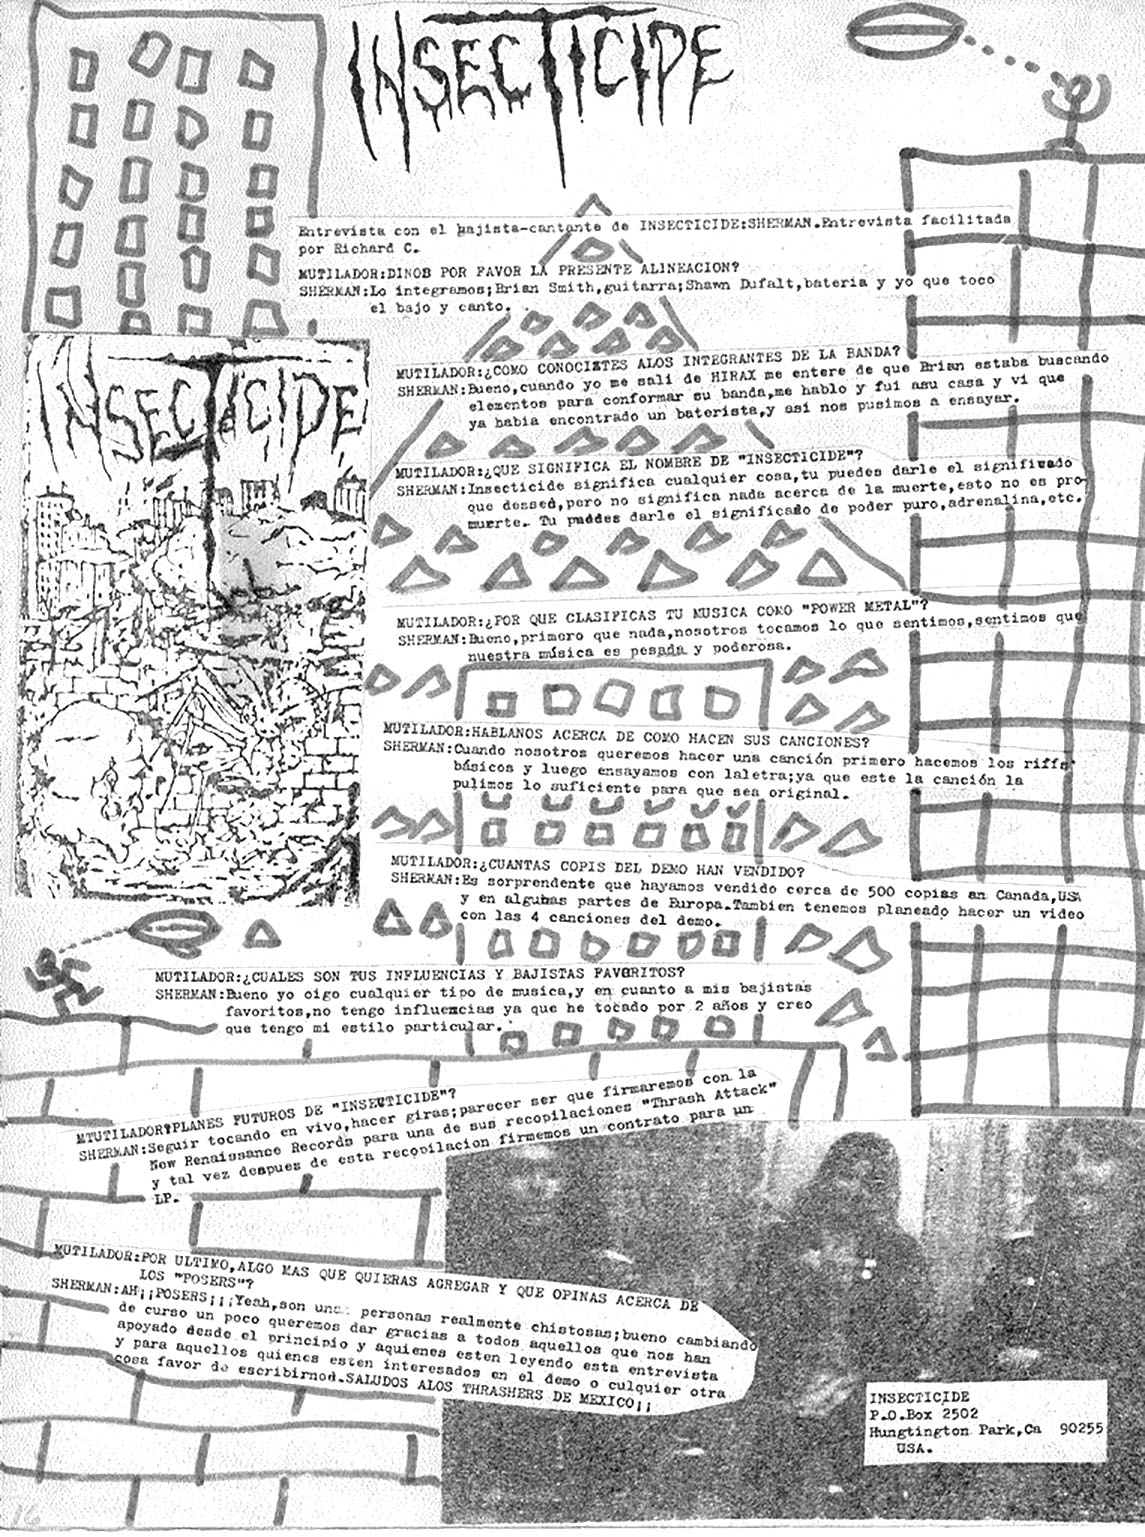 INSECTICIDE
Entrevista con el bajista-cantante de INSECTICIDE:SHERMAN.Entrevista facilitada
por Richard C.
MUTILADOR:DINOS POR FAVOR LA PRESENTE ALINEACION?
SHERMAN:Lo integramos;Brian Smith,guitarra;Shawn Dufalt,bateria y yo que toco
el bajo y canto.
INSECTICIDE
MUTILADOR:¿COMO CONOCISTES ALOS INTEGRANTES DE LA BANDA?
SHERMAN:Bueno,cuando yo me sali de HIRAX me entere de que Brian estaba buscando
elementos para conformar su banda,me hablo y fui asu casa y vi que
ya habia encontrado un baterista,y asi nos pusimos a ensayar.
MUTILADOR:¿QUE SIGNIFICA EL NOMBRE DE "INSECTICIDE"?
SHERMAN:Insecticide significa cualquier cosa,tu puedes darle el significado
que dessed,pero no significa nada acerca de la muerte,esto no es pro-
muerte. Tu puedes darle el significado de poder puro,adrenalina,etc.
MUTILADOR:¿POR QUE CLASIFICAS TU MUSICA COMO "POWER METAL"?
SHERMAN:Bueno,primero que nada,nosotros tocamos lo que sentimos,sentimos que
nuestra música es pesada y poderosa.
MUTILADOR:HABLANOS ACERCA DE COMO HACEN SUS CANCIONES?
SHERMAN:Cuando nosotros queremos hacer una canción primero hacemos los riffs
básicos y luego ensayamos con laletra;ya que este la canción la
pulimos lo suficiente para que sea original.
MUTILADOR:¿CUANTAS COPIS DEL DEMO HAN VENDIDO?
SHERMAN:Es sorprendente que hayamos vendido cerca de 500 copias an Canada,USA
y en algunas partes de Europa.Tambien tenemos planeado hacer un video
con las 4 canciones del demo.
MUTILADOR:¿CUALES SON TUS INFLUENCIAS Y BAJISTAS FAVORITOS?
SHERMAN:Bueno yo oigo cualquier tipo de musica,y en cuanto a mis bajistas
favoritos,no tengo influencias ya que he tocado por 2 años y creo
que tengo mi estilo particular.
MTUTILADOR:PLANES FUTUROS DE "INSECTICIDE"?
SHERMAN:Seguir tocando en vivo,hacer giras;parecer ser que firmaremos con la
New Renaissance Records para una de sus recopilaciones "Thrash Attack"
y tal vez despues de esta recopilacion firmemos un contrato para un
LP.
MUTILADOR:POR ULTIMO,ALGO MAS QUE QUIERAS AGREGAR Y QUE OPINAS ACERCA DE
LOS "POSERS"?
SHERMAN:AH¡¡POSERS¡¡¡Yeah,son unas personas realmente chistosas;bueno cambiando
de curso un poco queremos dar gracias a todos aquellos que nos han
apoyado desde el principio y aquienes esten leyendo esta entrevista
y para aquellos quienes esten interesados en el demo o culquier otra
cosa favor de escribirnod.SALUDOS ALOS THRASHERS DE MEXICO¡¡
INSECTICIDE
P.O.Box 2502
Hungtington Park,Ca 90255
USA.
16